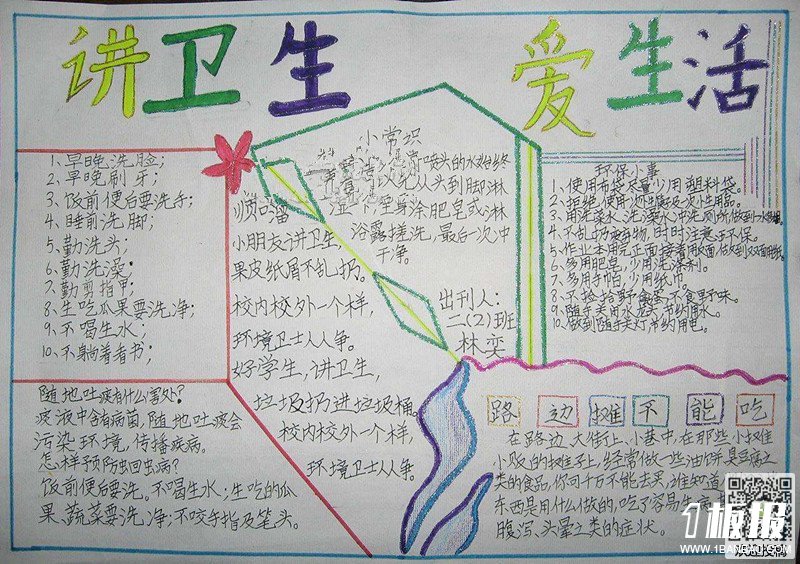 讲卫生 爱生活
1、早晚洗脸；
2、早晚刷牙；
3、饭前便后要洗手；
4、睡前洗脚；
5、勤洗头；
6、勤洗澡；
7、勤剪指甲；
8、生吃瓜果要洗净；
9、不喝生水；
10、不躺着看书；
随地吐痰有什么害处？
痰液中含有病菌，随地吐痰会
污染环境，传播疾病。
怎样预防蛔虫病？
饭前便后要洗。不喝生水；生吃的瓜
果、蔬菜要洗净；不咬手指及笔头。
小常识
喷头的水始终
从头到脚淋
全身涂肥皂或淋
浴露搓洗，最后一次冲
干净。
顺口溜
小朋友讲卫生，
果皮纸屑不乱扔。
校内校外一个样，
环境卫士人人争。
好学生，讲卫生，
垃圾扔进垃圾桶。
校内校外一个样，
环境卫士人人争。
出刊人：
二(2)班
林奕
环保小事
1、使用布袋尽量少用塑料袋。
2、拒绝使用
3、用洗菜水、洗澡水冲洗厕所
4、不乱扔 时时注意环保。
5、作业本用完正面接着用反面
6、多用肥皂，少用洗涤剂。
7、多用手帕，少用纸巾。
8、不捡拾野禽 不食野味。
9、随手关闭水龙头 节约用水。
10、做到随手关灯 节约用电。
路边摊不能吃
在路边、大街上、小巷中，在那些小摊
小贩的摊子上，经常做一些油饼、臭豆腐之
类的食品，你可千万不能去买，谁知道
东西是用什么做的，吃了容易生病
腹泻、头晕之类的症状。
1板报
WWW.1BANBAO.COM